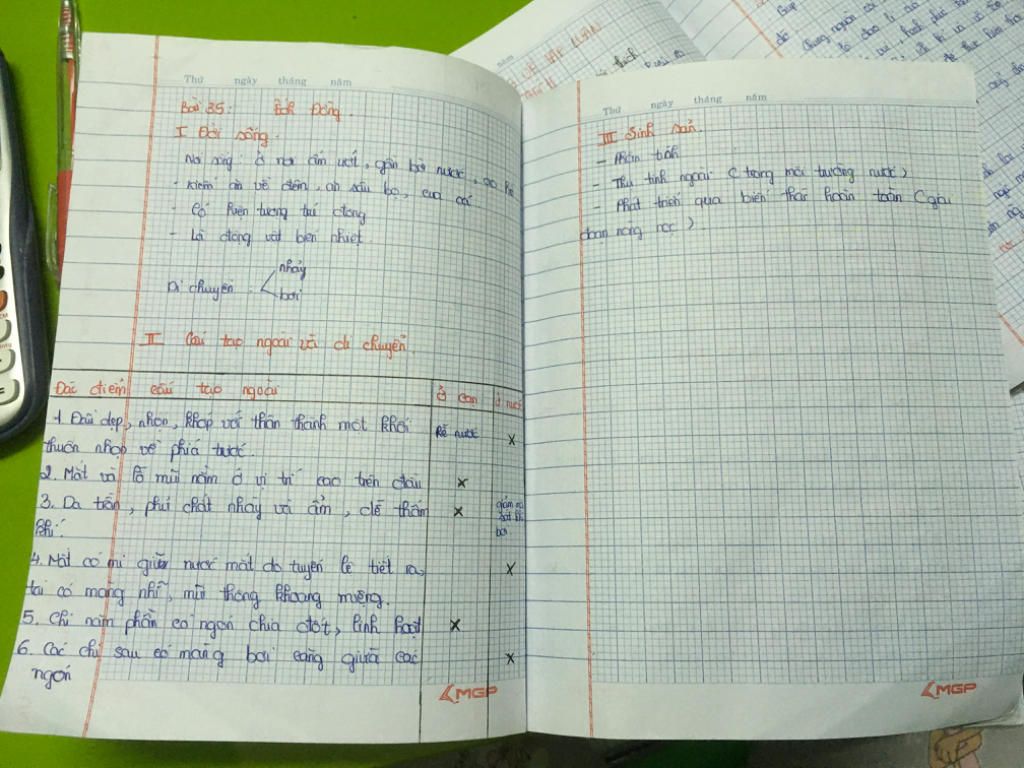 Thứ ngày tháng năm
Bài 35: Ếch Đồng.
I Đời sống.
Nơi sống: ở nơi ẩm ướt, gần bờ nước, ao
- Kiếm ăn về đêm, ăn sâu bọ, cua cá
- Có hiện tượng trú đông
- Là động vật biến nhiệt.
Di chuyển: nhảy
bơi
II Cấu tạo ngoài và di chuyển.
Đặc điểm cấu tạo ngoài
Ở cạn
Ở nước
1. Đầu dẹp, nhọn, khớp với thân thành một khối
Rẽ nước
x
thuôn nhọn về phía trước.
2. Mắt và lỗ mũi nằm ở vị trí cao trên đầu
x
3. Da trần, phủ chất nhầy và ẩm, dễ thấm
x
giảm ma
sát khi
bơi
khí.
4. Mắt có mi giữ nước mắt do tuyến lệ tiết ra,
x
tai có màng nhĩ, mũi thông khoang miệng.
5. Chi năm phần có ngón chia đốt, linh hoạt
x
6. Các chi sau có màng bơi căng giữa các
x
ngón
MGP
Thứ ngày tháng năm
III Sinh sản.
- Phân tính
- Thụ tinh ngoài (trong môi trường nước)
- Phát triển qua biến thái hoàn toàn (giai
đoạn nòng nọc).
MGP